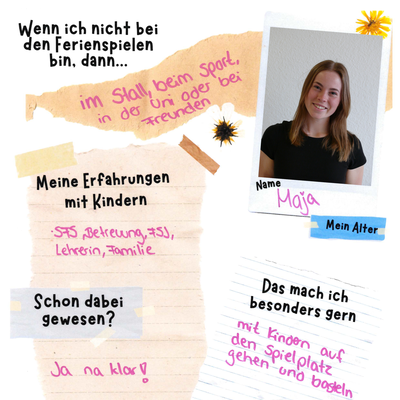 Wenn ich nicht bei
den Ferienspielen
bin, dann...
im Stall, beim Sport,
in der Uni oder bei
Freunden
Name
Maja
Mein Alter
Meine Erfahrungen
mit Kindern
SFS, Betreuung, FSJ,
Lehrerin, Familie
Schon dabei
gewesen?
Ja na klar!
Das mach ich
besonders gern
mit Kindern auf
den Spielplatz
gehen und basteln